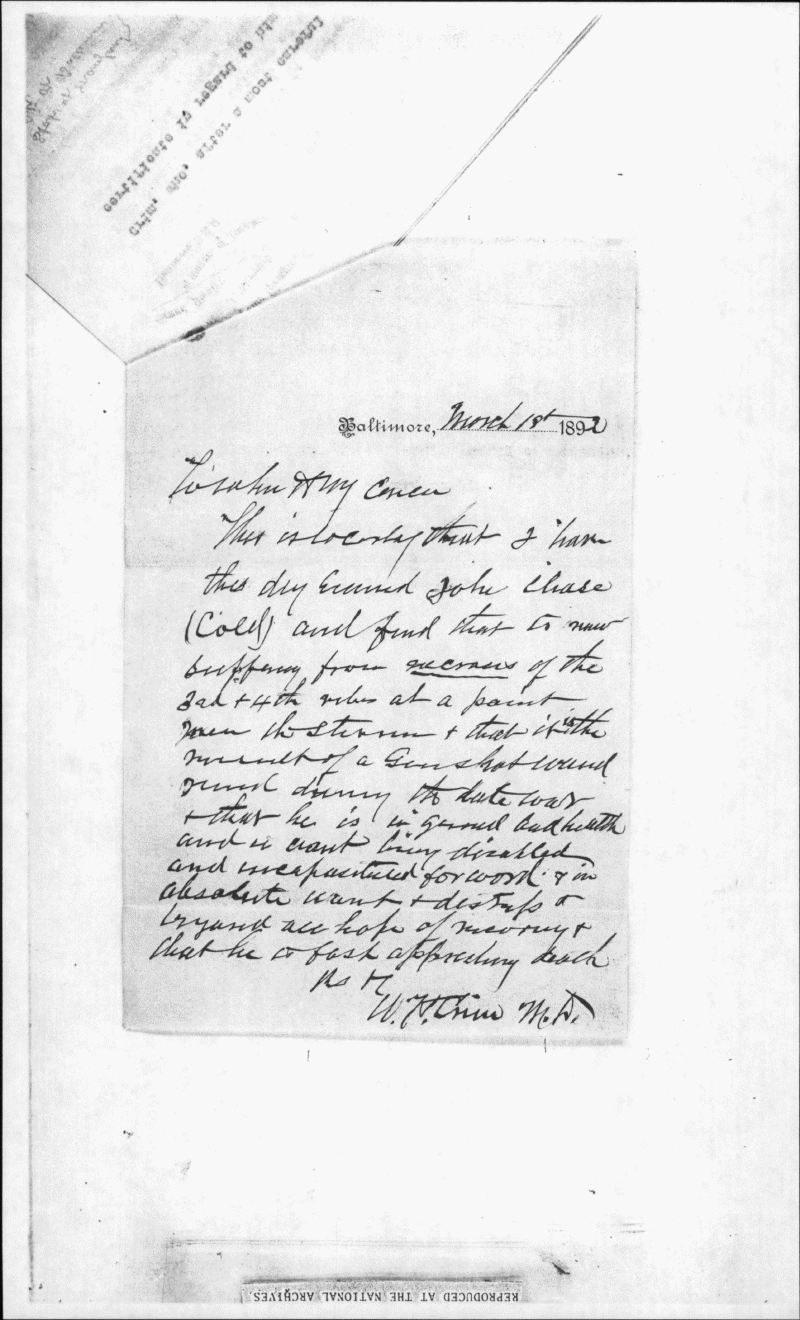 certificate in regard to his
Crim, who, after a most careful
Baltimore, March 18th 1892
To whom it my Concern
This is to certify that I have
this dy Examined John Chase
(Cold) and find that is now
suffering from necrosis of the
3rd + 4th ribs at a point
near the sternum + that it is the
result of a Gunshot wound
recvd during the late war
+ that he is in general bad health
and in want being disabled
and incapacitated for work & in
absolute want + distress &
beyond all hope of recovery +
that he is fast approaching death
W. H. Crim M.D.
REPRODUCED AT THE NATIONAL ARCHIVES.